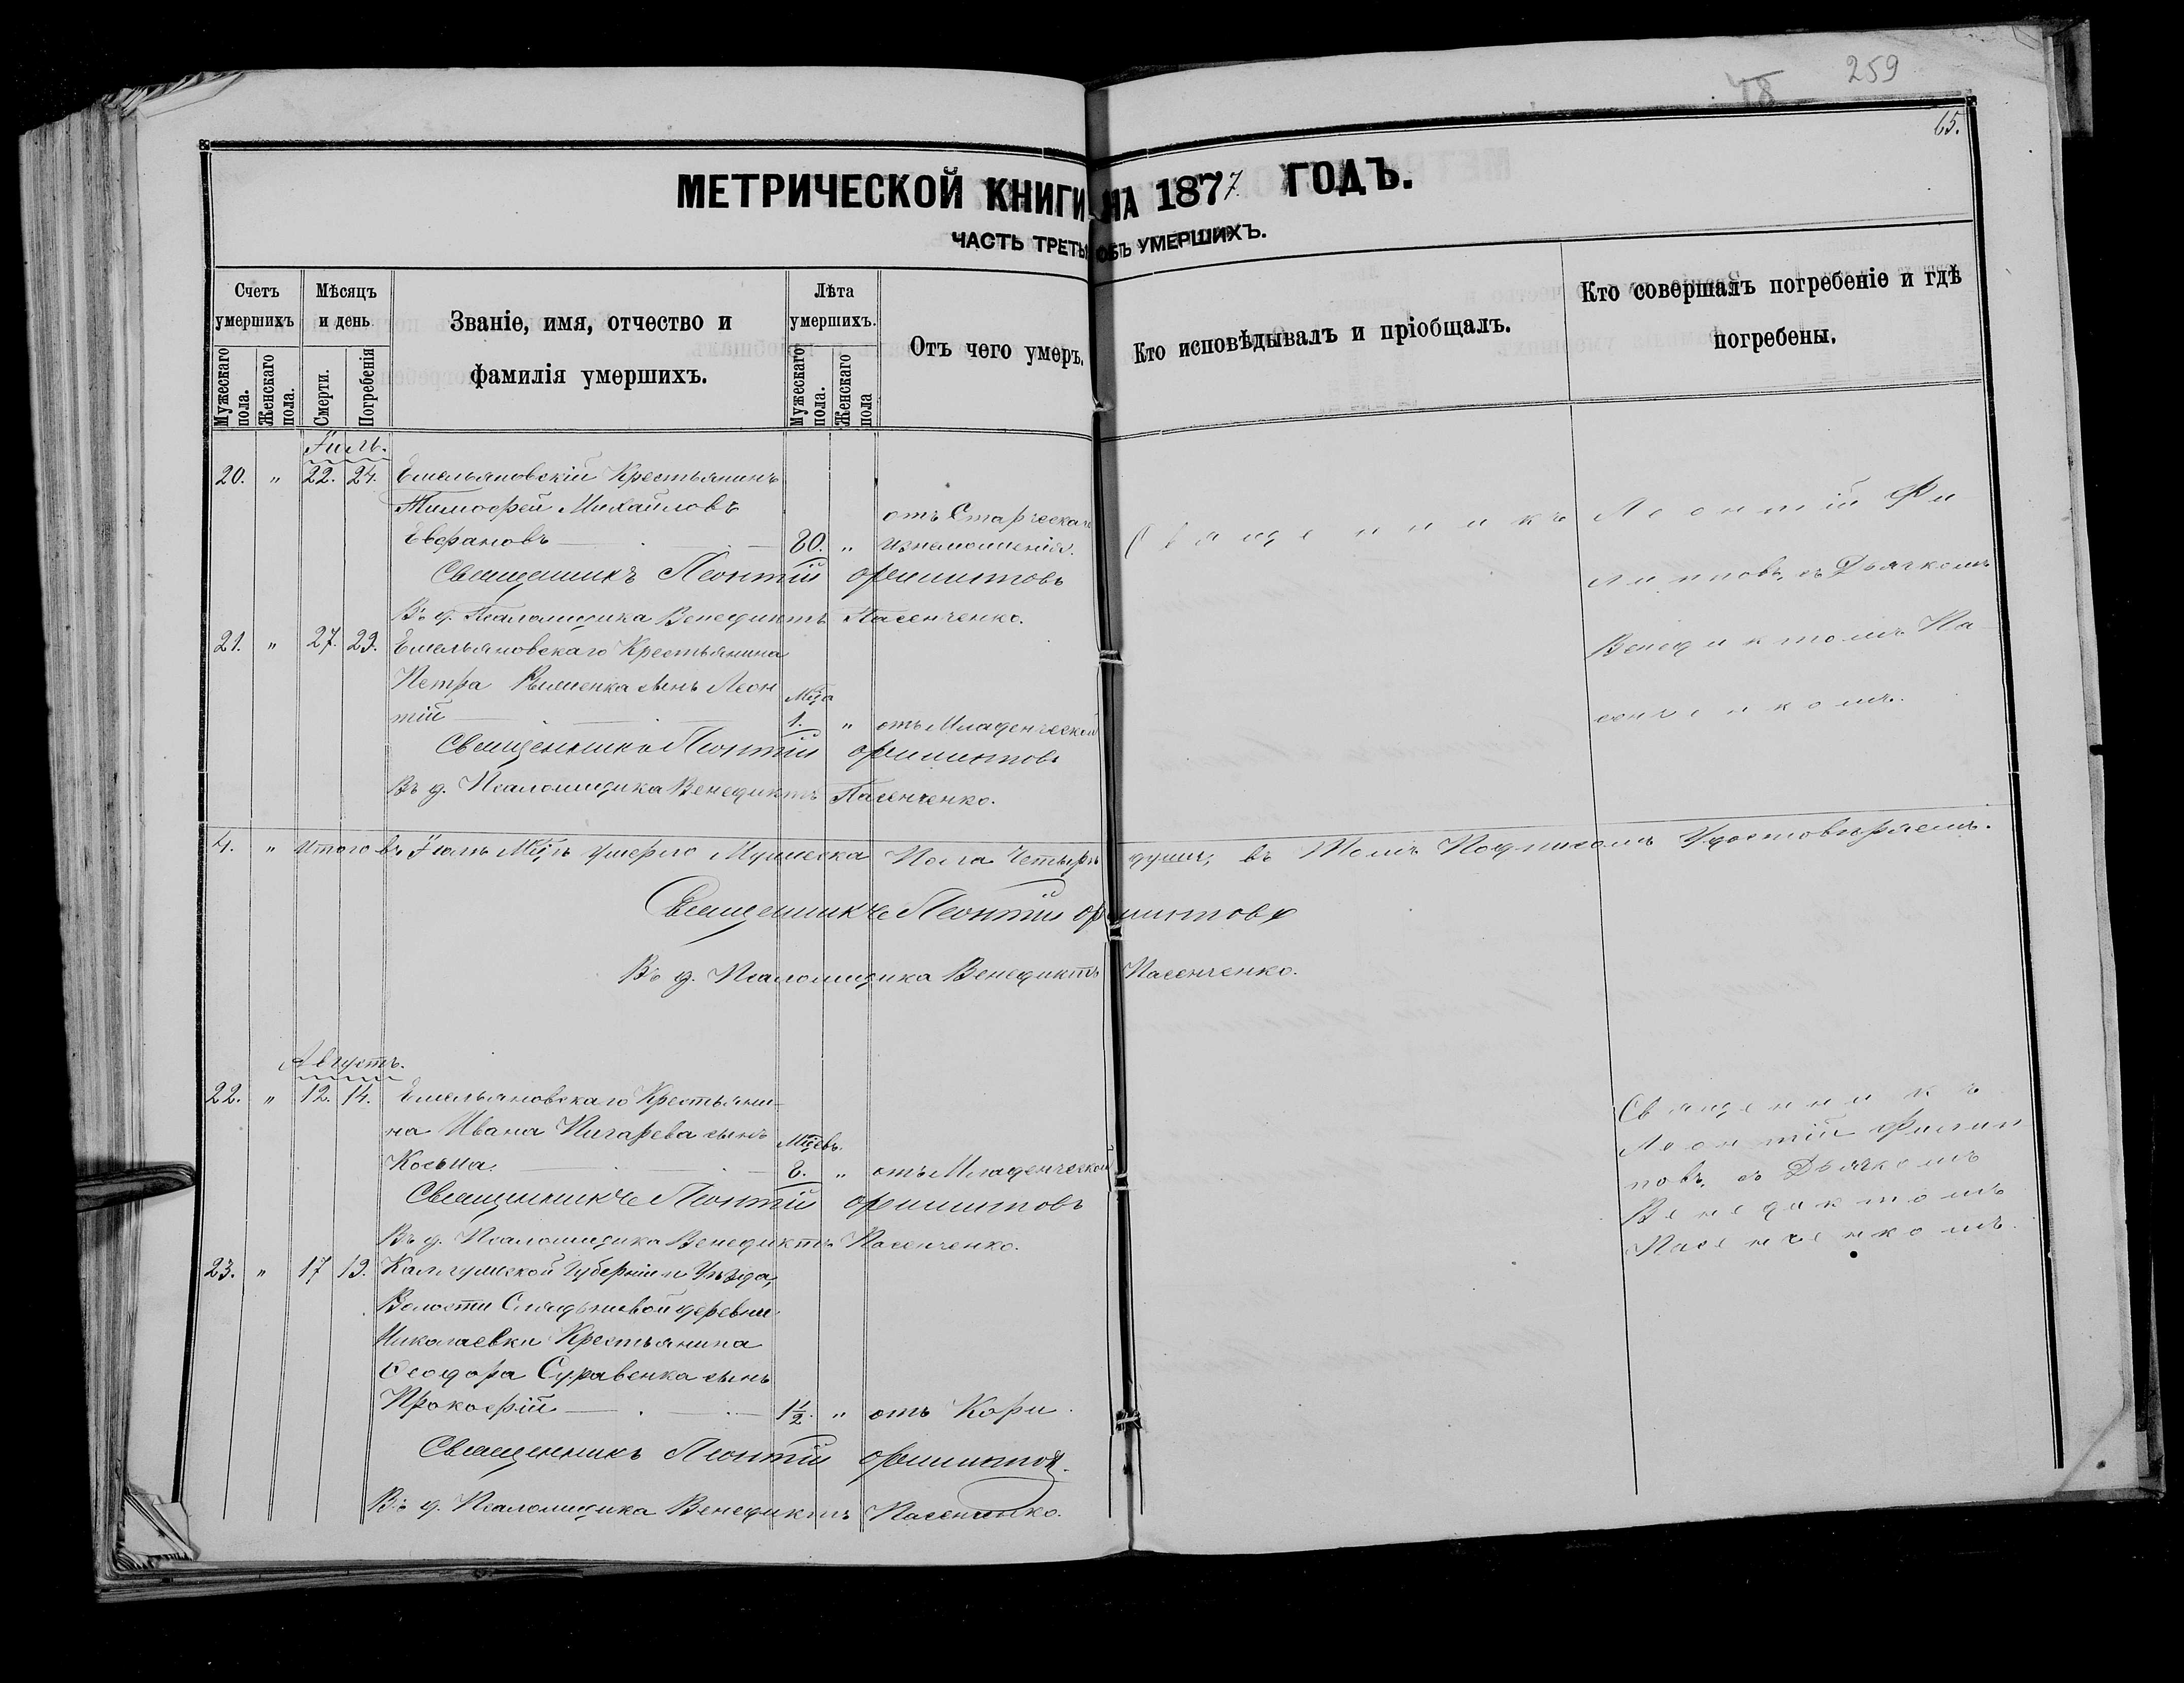 259
78
65.
МЕТРИЧЕСКОЙ КНИГИ НА 1877 ГОДЪ.
ЧАСТЬ ТРЕТЬ ОБЪ УМЕРШИХЪ.
Счетъ умершихъ
Мужескаго пола.
Женскаго пола.
Мѣсяцъ и день
Смерти.
Погребенія
Званіе, имя, отчество и
фамилія умершихъ.
Лѣта умершихъ.
Мужескаго пола.
Женскаго пола
Отъ чего умеръ.
Кто исповѣдывалъ и пріобщалъ.
Кто совершалъ погребеніе и гдѣ
погребены.
20. " 22. 24. Емельяновскій Крестьянинъ
Тимофей Михайловъ отъ Старческаго
80. " изнеможенія. Священникъ Леонтій Фи
Священникъ Леонтій Филипповъ
липповъ, съ Дьячкомъ
В. д. Псаломщика Венедиктъ Пасенченко.
21. " 27. 29. Емельяновскаго Крестьянина
Венедиктомъ Па
Петра сынъ Леон Мѣца
тій 1. " отъ Младенческой
сенченкомъ.
Священникъ Леонтій Филипповъ
Въ д. Псаломщика Венедиктъ Пасенченко.
4. " Итого въ Іюлѣ Мѣцѣ умерло Мужеска Пола Четыре души, въ томъ Подписомъ Удостовѣряемъ.
Священникъ Леонтій Филипповъ
Въ д. Псаломщика Венедиктъ Пасенченко.
Августъ.
22. " 12. 14. Емельяновскаго Крестьяни-
на Ивана Пигарева сынъ Мѣцевъ.
Косьма. 8. " отъ Младенческой
Священникъ
Леонтій Филип
повъ, съ Дьячкомъ
Венедиктомъ
Пасенченкомъ.
Священникъ Леонтій Филипповъ
Въ д. Псаломщика Венедиктъ Пасенченко.
23. " 17 19. Калужской Губерніи и Уѣзда,
Волости деревни
Николаевки Крестьянина
Ѳеодора Суравенка сынъ
Прокофій 1½. " отъ Кори.
Священникъ Леонтій Филипповъ.
В. д. Псаломщика Венедиктъ Пасенченко.